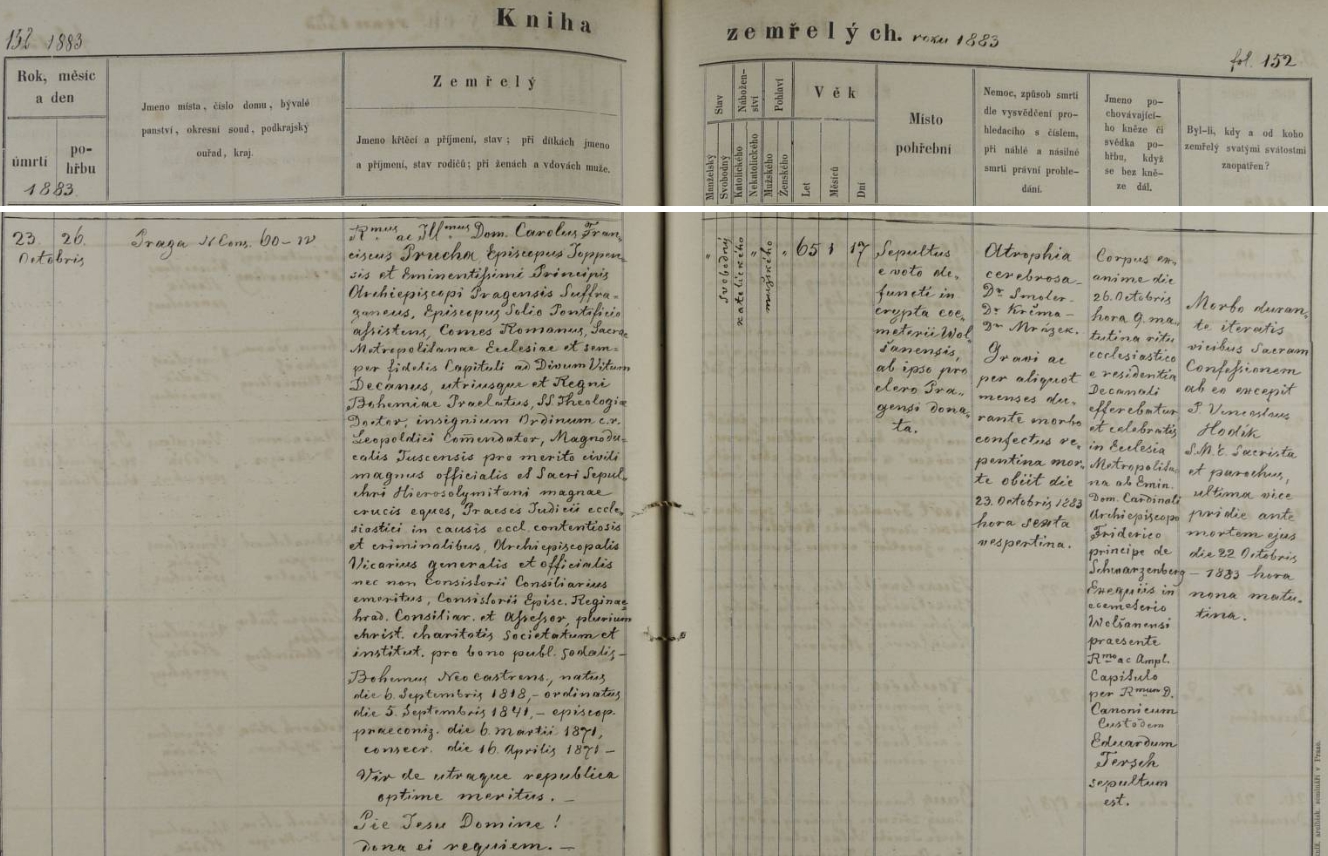 Kniha
132 1883
Rok, měsíc
a den
úmrtí
po-
hřbu
1883
Jmeno místa, číslo domu, bývalé
panství, okresní soud, podkrajský
ouřad, kraj.
Zemřelý
Jmeno křtěcí a příjmení, stav; při dítkách jmeno
a příjmení, stav rodičů; při ženách a vdovách muže.
zemřelých. roku 1883
fol. 152
Stav
Manželský
Svobodný
Nábožen-
ství
Katolického
Nekatolického
Pohlaví
Mužského
Ženského
Věk
Let
Měsíců
Dní
Místo
pohřební
Nemoc, způsob smrti
dle vysvědčení pro-
hledacího s číslem,
při náhlé a násilné
smrti právní prohle-
dání.
Jmeno po-
chovávající-
ho kněze či
svědka po-
hřbu, když
se bez kně-
ze dál.
Byl-li, kdy a od koho
zemřelý svatými svátostmi
zaopatřen?
23. 26.
Octobris
Praga N Cons. 60-IV
Rmus ac Illmus Dom. Carolus Fran-
ciscus Prucha, Episcopus Joppen-
sis et Eminentissimi Principis
Archiepiscopi Pragensis Suffra-
ganeus, Episcopus Solio Pontificio
assistens, Comes Romanus, Sacrae
Metropolitanae Ecclesiae et sem-
per fidelis Capituli ad Divum Vitum
Decanus, utriusque et Regni
Bohemiae Praelatus, SS Theologiae
Doctor, insignium Ordinum c.r.
Leopoldici Comendator, Magnodu-
calis Tuscensis pro merito civili
magnus officialis et Sacri Sepul-
chri Hierosolymitani magnae
crucis eques, Praeses Judicii eccle-
siastici in causis eccl. contentiosis
et criminalibus, Archiepiscopalis
Vicarius generalis et officialis
nec non Consistorii Consiliarius
emeritus, Consistorii Episc. Reginae
hrad. Consiliar. et Assessor, plurium
christ. charitatis Societatum et
institut. pro bono publ. sodalis –
Bohemus Neocastrens., natus
die 6. Septembris 1818, – ordinatus
die 5. Septembris 1841, – episcop.
praeconiz. die 6. martii 1871,
consecr. die 16. Aprilis 1871 –
Vir de utraque republica
optime meritus. –
Pie Jesu Domine!
dona ei requiem. –
" svobodný katolického " mužského " 65 1 17
Sepultus
e voto de-
functi in
crypta coe-
meterii Wol-
šanensis,
ab ipso pro
clero Pra-
gensi dona-
ta.
Atrophia
cerebrosa.
Dr Smoler.
Dr Křima –
Dr Mrázek.
Gravi ac
per aliquot
menses du-
rante morbo
confectus re-
pentina mor-
te obiit die
23. Octobris 1883
hora sexta
vespertina.
Corpus ex-
anime die
26. Octobris
hora 9. ma-
tutina ritu
ecclesiastico
e residentia
Decanali
efferebatur
et celebratis
in Ecclesia
Metropolita-
na ab Emin.
Dom. Cardinali
Archiepiscopo
Friderico
principe de
Schwarzenberg
Exequiis in
coemeterio
Wolšanensi
praesente
Rmo ac Ampl.
Capitulo
per Rmum D.
Canonicum
Custodem
Eduardum
Tersch
sepultum
est.
Morbo duran-
te iteratis
vicibus Sacram
Confessionem
ab eo excepit
P. Venceslaus
Hodík
S.M.E. Sacrista
et parochus,
ultima vice
pridie ante
mortem ejus
die 22 Octobris
– 1883 hora
nona matu-
tina.